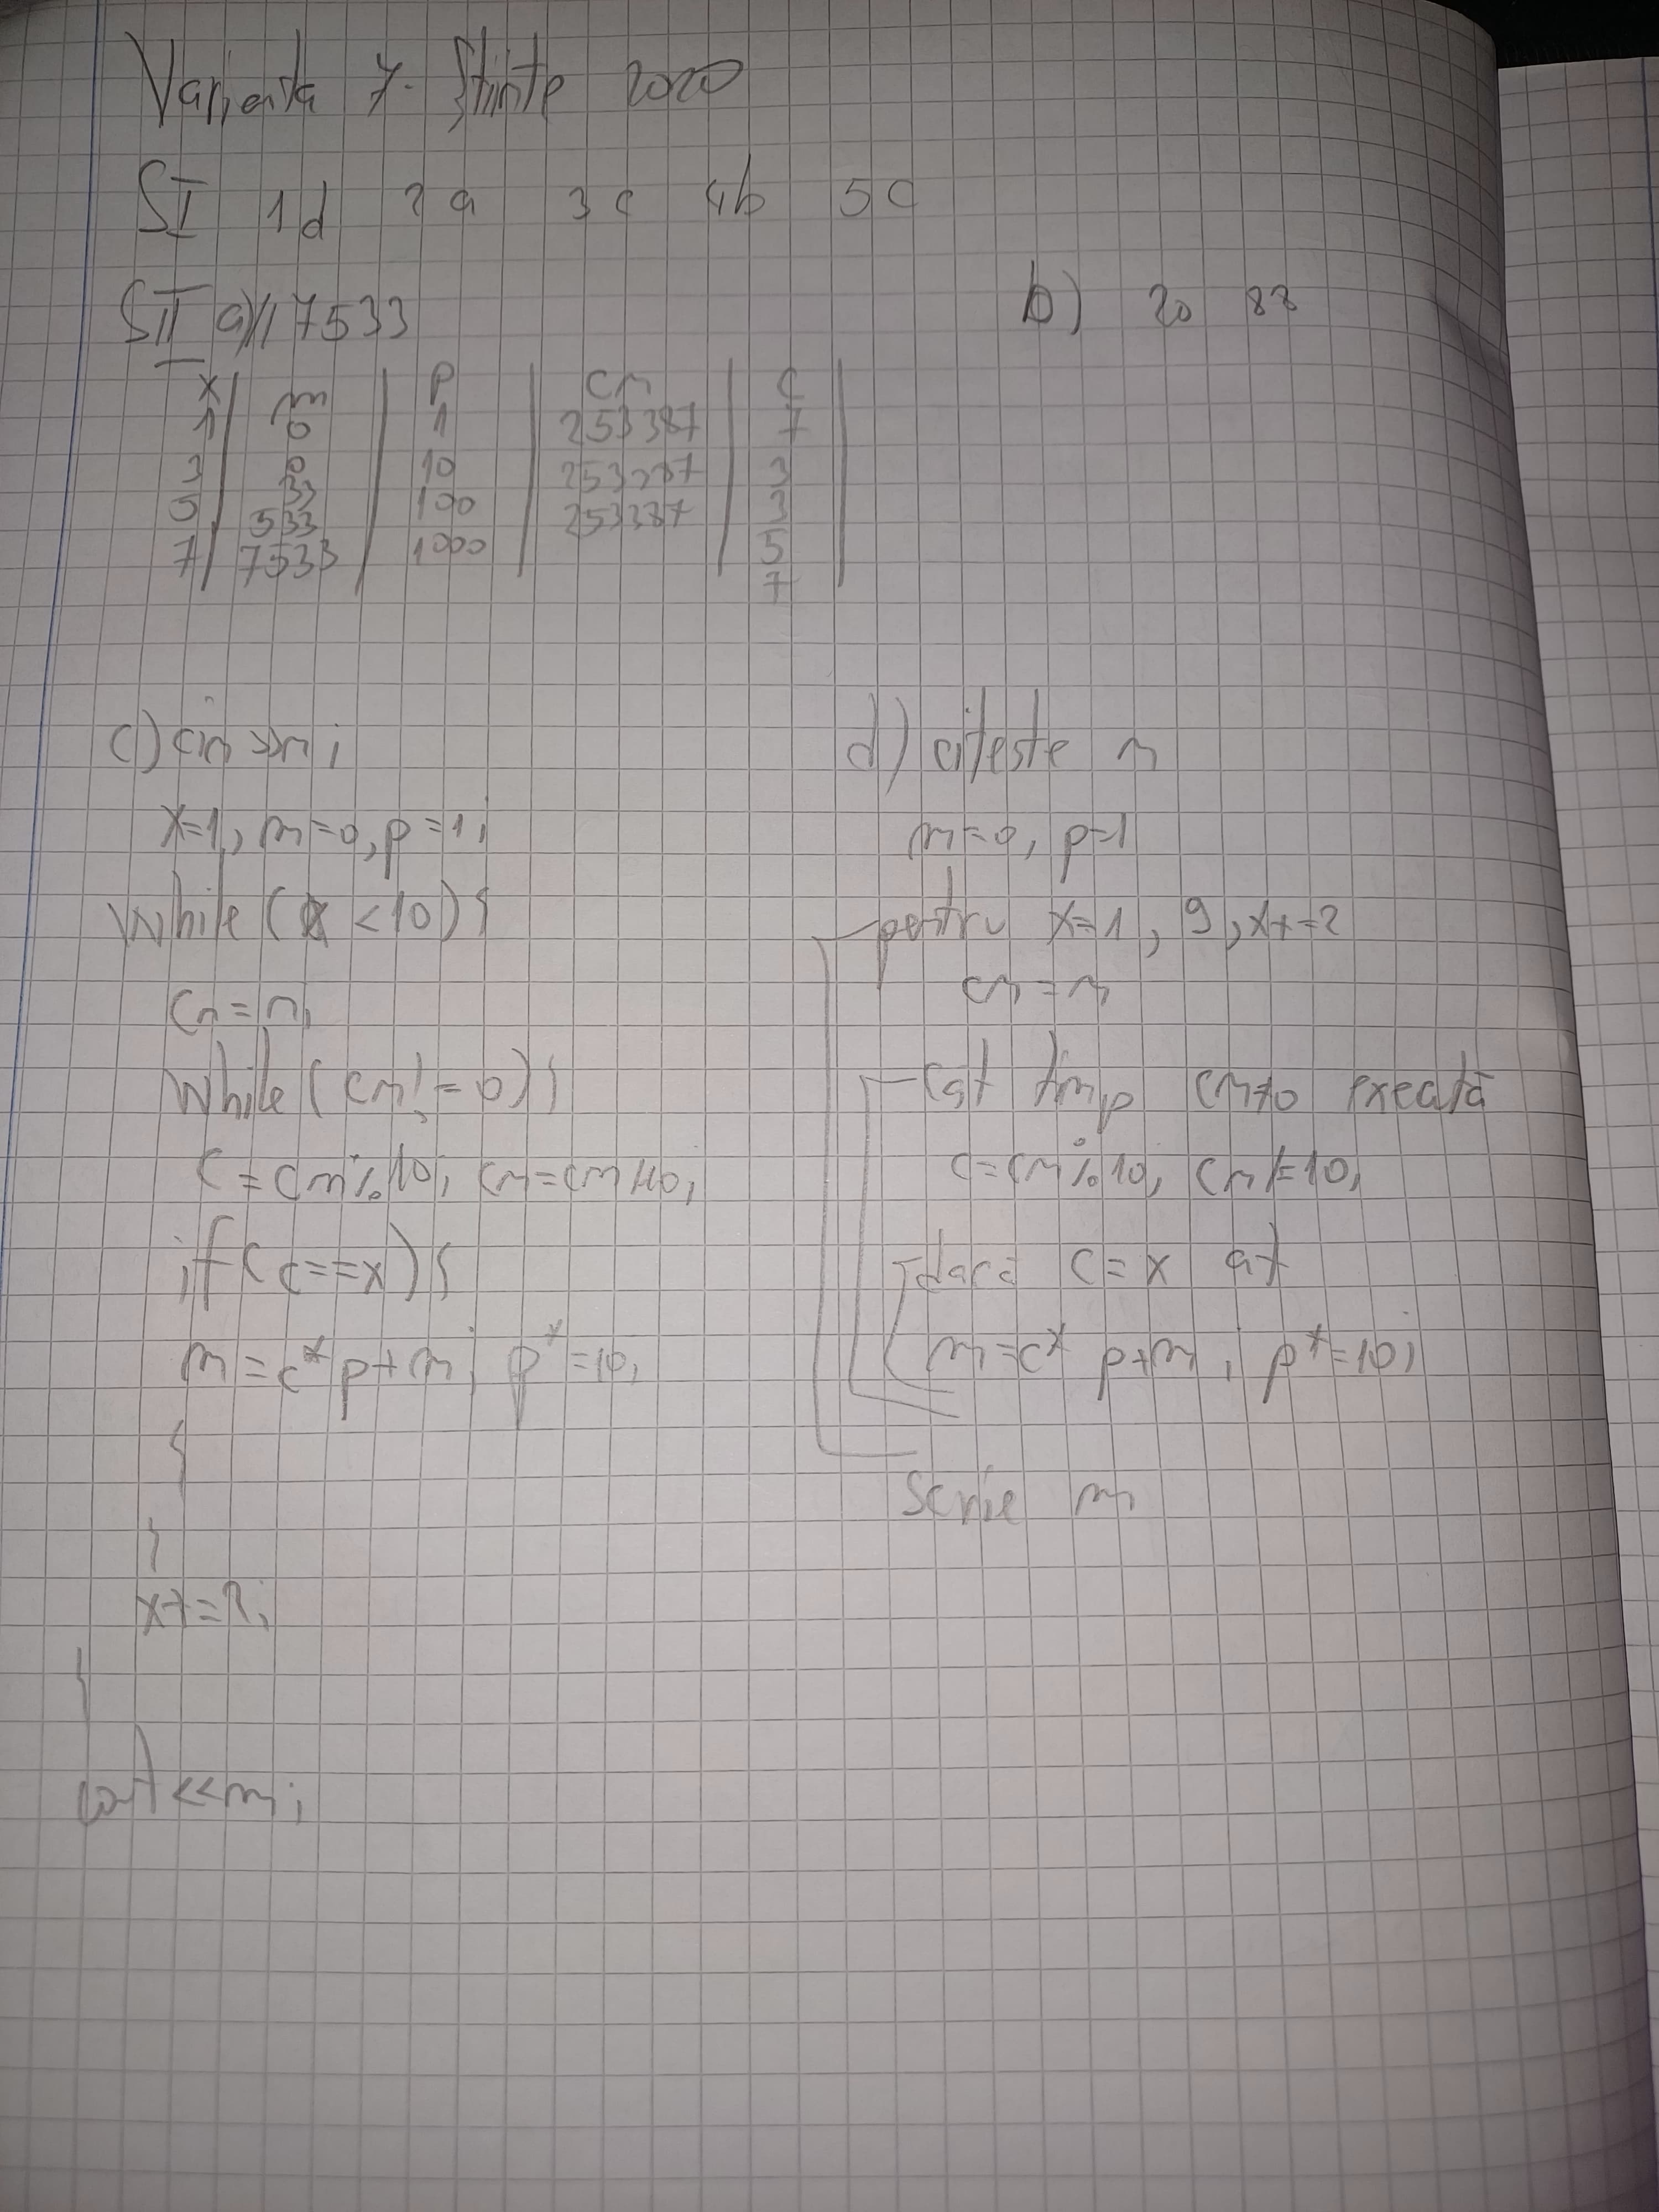 Varianta 7. Științe 2020
SI 1d 2a 3c 4b 5c
SII a) 7533
b) 20 88
x m p cn c
1 0 1 253387 7
3 0 10 253387 3
33
5 533 100 253387 3
7 7533 1000 5
7
c) cin>>n;
x=1, m=0, p=1;
while (x<10){
cn=n;
while (cn!=0){
c=cn%10; cn=cn/10;
if (c==x){
m=c*p+m; p*=10;
}
}
x+=2;
}
cout<<m;
d) citeste n
m=0, p=1
pentru x=1, 9, x+=2
cn=n
cat timp cn≠0 execută
c=cn%10, cn/=10;
dacă c=x at
m=c*p+m; p*=10;
Scrie m